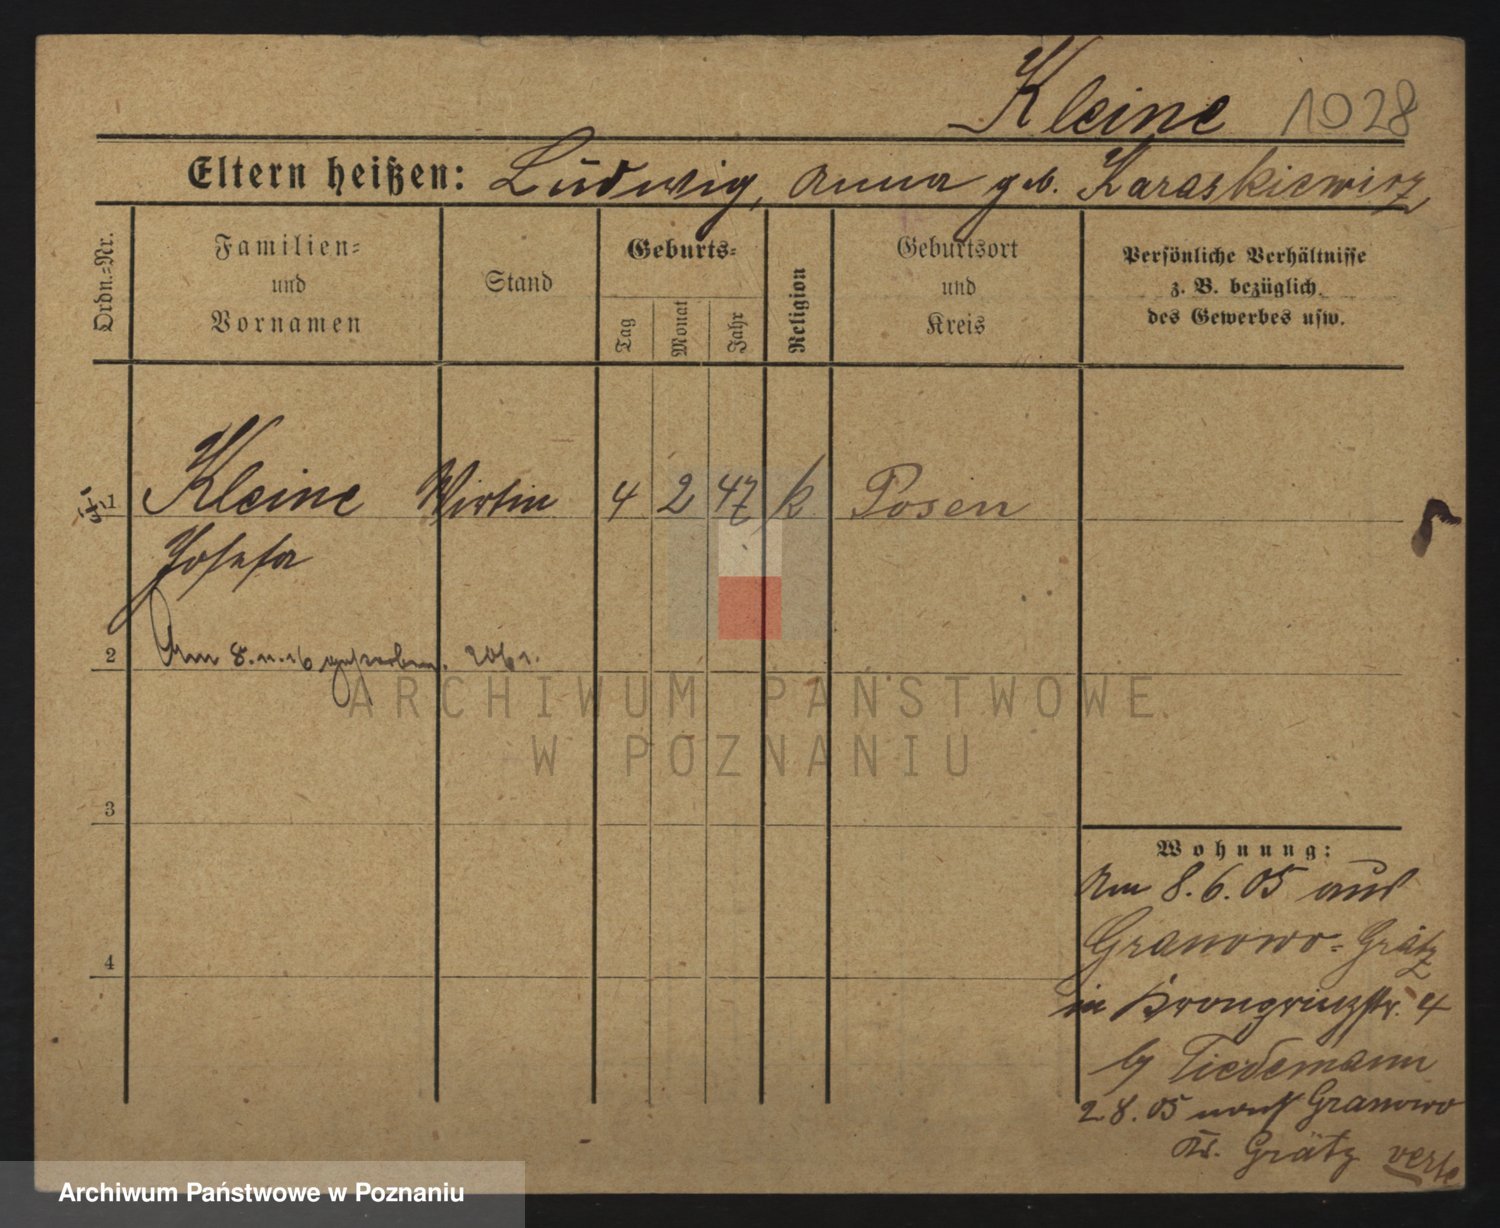 Kleine 1028
Eltern heißen: Ludwig, Anna geb. Karaskiewicz
Ordn.=Nr.
Familien=
und
Vornamen
Stand
Geburts=
Tag
Monat
Jahr
Religion
Geburtsort
und
Kreis
Persönliche Verhältnisse
z. B. bezüglich
des Gewerbes usw.
1 Kleine Wirtin 4 2 47 k Posen
Josefa
2 Am 8. 11. 16 gestorben.
3
4
Wohnung:
Am 8.6.05 aus
Granowo=Grätz
in Kronprinzstr. 4
by Tiedemann
2.8.05 nach Granowo
Kr. Grätz verte
ARCHIWUM PAŃSTWOWE
W POZNANIU
Archiwum Państwowe w Poznaniu